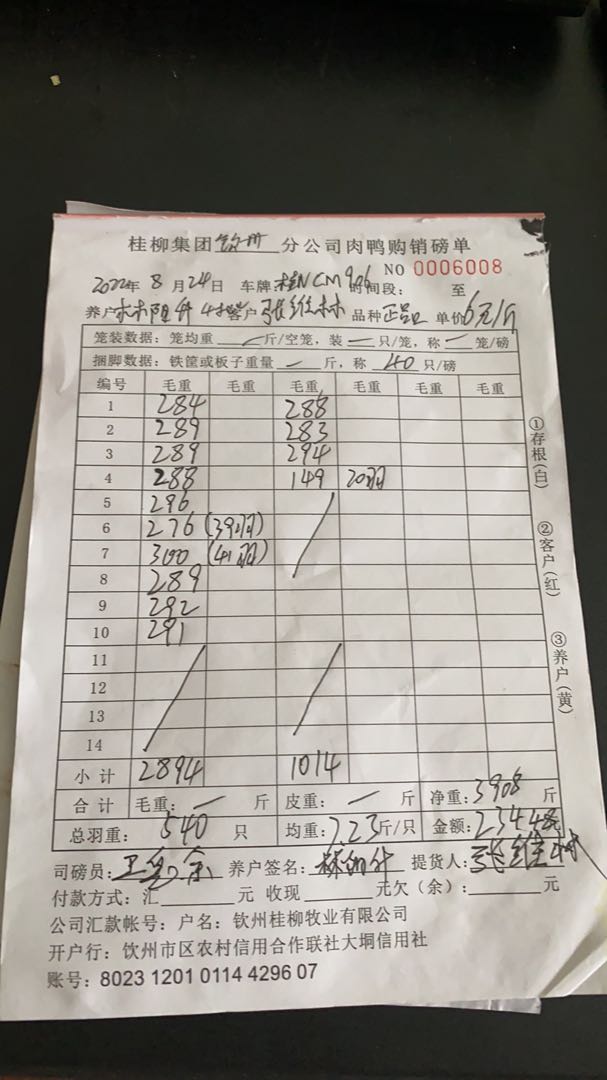 桂柳集团钦州分公司肉鸭购销磅单
NO 0006008
2022年8月24日 车牌 桂N CM906 时间段: 至
养户 客户 张维林 品种 正品 单价 6元/斤
笼装数据:笼均重 — 斤/空笼,装 — 只/笼,称 — 笼/磅
捆脚数据:铁筐或板子重量 — 斤,称 40 只/磅
编号 毛重 毛重 毛重 毛重 毛重
1 284 288
2 289 283
3 289 294
4 288 149 20羽
5 296
6 276 (39羽)
7 300 (41羽)
8 289
9 292
10 291
11
12
13
14
小计 2894 1014
合计 毛重: — 斤 皮重: — 斤 净重: 3908 斤
总羽重: 540 只 均重: 7.23 斤/只 金额: 23448元
司磅员: 养户签名: 提货人: 张维林
付款方式:汇 元 收现 元欠(余): 元
公司汇款帐号:户名:钦州桂柳牧业有限公司
开户行:饮州市区农村信用合作联社大垌信用社
账号:8023 1201 0114 4296 07
①存根(白)
②客户(红)
③养户(黄)